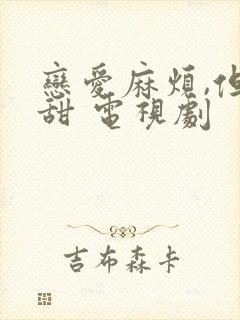 戀愛麻煩,但
甜 電視劇
吉布森卡